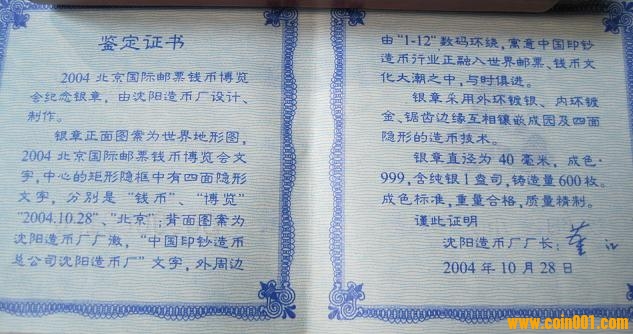 鉴定证书
2004 北京国际邮票钱币博览
会纪念银章，由沈阳造币厂设计、
制作。
银章正面图案为世界地形图，
2004 北京国际邮票钱币博览会文
字，中心的矩形隐框中有四面隐形
文字，分别是“钱币”、“博览”
“2004.10.28”、“北京”；背面图案为
沈阳造币厂厂徽，“中国印钞造币
总公司沈阳造币厂”文字，外周边
由“1-12”数码环绕，寓意中国印钞
造币行业正融入世界邮票、钱币文
化大潮之中，与时俱进。
银章采用外环镀银、内环镀
金、锯齿边缘互相镶嵌成园及四面
隐形的造币技术。
银章直径为 40 毫米，成色·
999，含纯银 1 盎司，铸造量 600 枚。
成色标准，重量合格，质量精制。
谨此证明
沈阳造币厂厂长：
2004 年 10 月 28 日
www.coin001.com